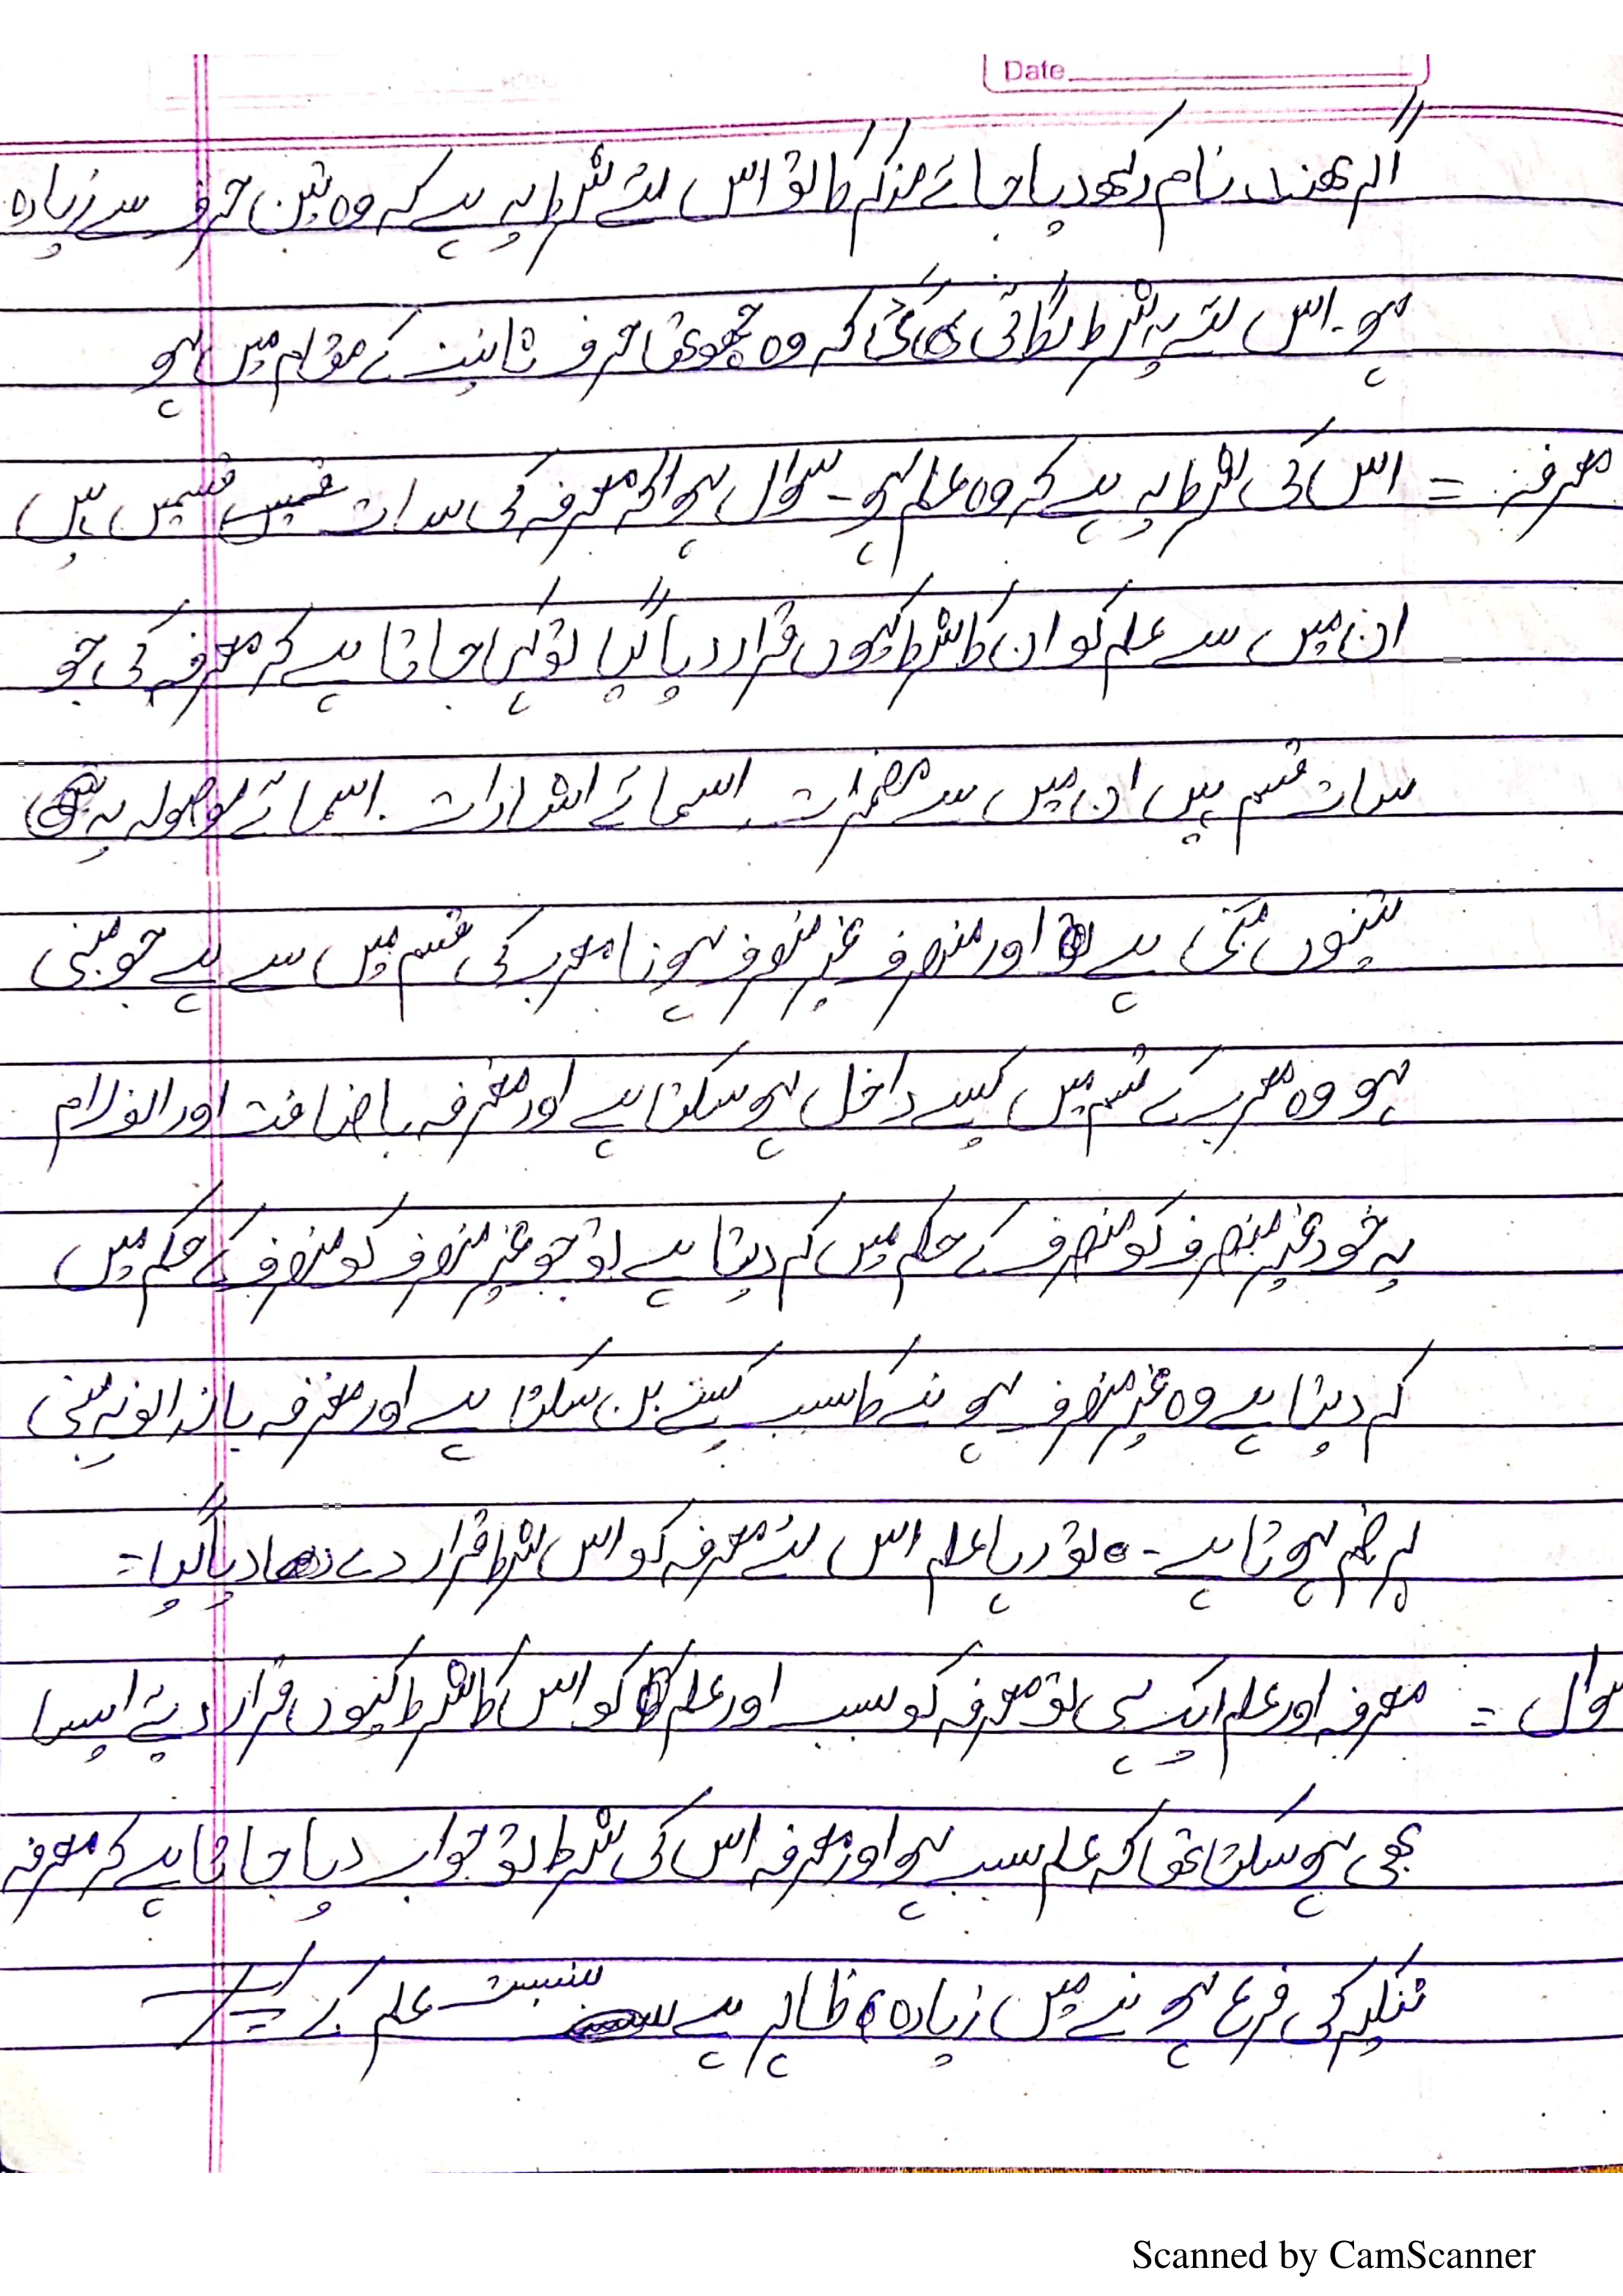 Date
اگر ھند نام رکھ دیا جائے مذکر کا تو اس لئے شرط یہ ہے کہ وہ تین حرف سے زیادہ
ہو۔ اس لئے یہ شرط لگائی گئی کہ وہ چھوتھا حرف تانیث کے مقام میں ہو
معرفہ = اس کی شرط یہ ہے کہ وہ علم ہو۔ سوال ہوا کہ معرفہ کی سات قسمیں ہیں
ان میں سے علم کو ان کا شرط کیوں قرار دیا گیا تو کہا جاتا ہے کہ معرفہ کی جو
سات قسم ہیں ان میں سے مضمرات اسمائے اشارات . اسمائے موصولہ یہ
تینوں مبنی ہے اور منصرف غیر منصرف ہونا معرب کی قسم میں سے ہے جو مبنی
ہو وہ معرب کے قسم میں کیسے داخل ہو سکتا ہے اور معرفہ باضافت اور الف لام
یہ خود غیر منصرف کو منصرف کے حکم میں کر دیتا ہے تو جو غیر منصرف کو منصرف کے حکم میں
کر دیتا ہے وہ غیر منصرف ہونے کا سبب کیسے بن سکتا ہے اور معرفہ بانداء تو یہ مبنی
بر ضم ہوتا ہے۔ تو رہا علم اس لئے معرفہ کو اس شرط قرار دے دیا گیا =
سوال = معرفہ اور علم ایک ہی تو معرفہ کو سبب اور علم کو اس کا شرط کیوں قرار دیئے ایسا
بھی ہو سکتا تھا کہ علم سبب ہو اور معرفہ اس کی شرط تو جواب دیا جاتا ہے کہ معرفہ
تنکیر کی فرع ہونے میں زیادہ ظاہر ہے بنسبت علم کے
Scanned by CamScanner